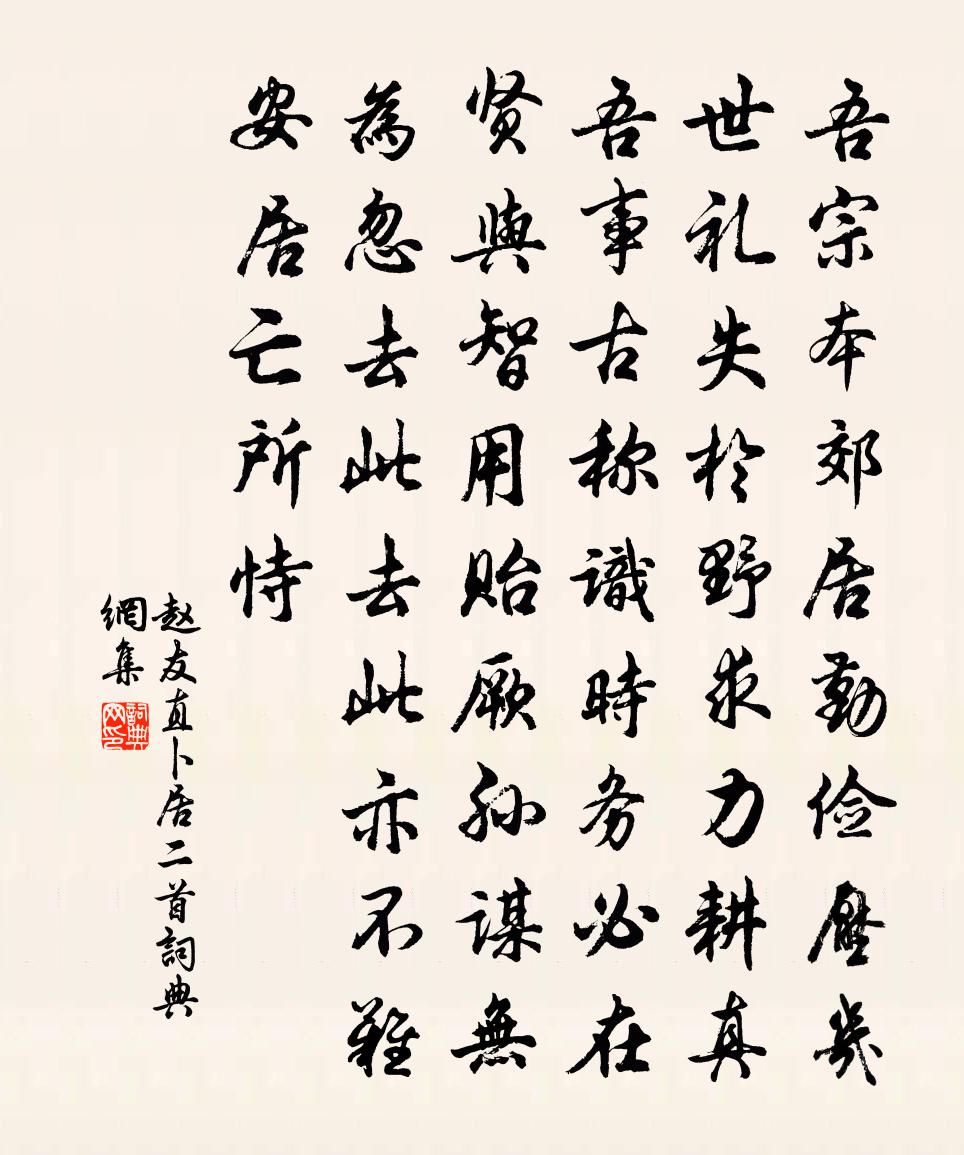 吾宗本郊居勤俭歷幾
世礼失於野求力耕真
吾事古称識時务必在
贤與智用貽厥孙謀無
為忽去此去此亦不難
安居亡所恃
赵友直卜居二首詞典
網集
詞典网印